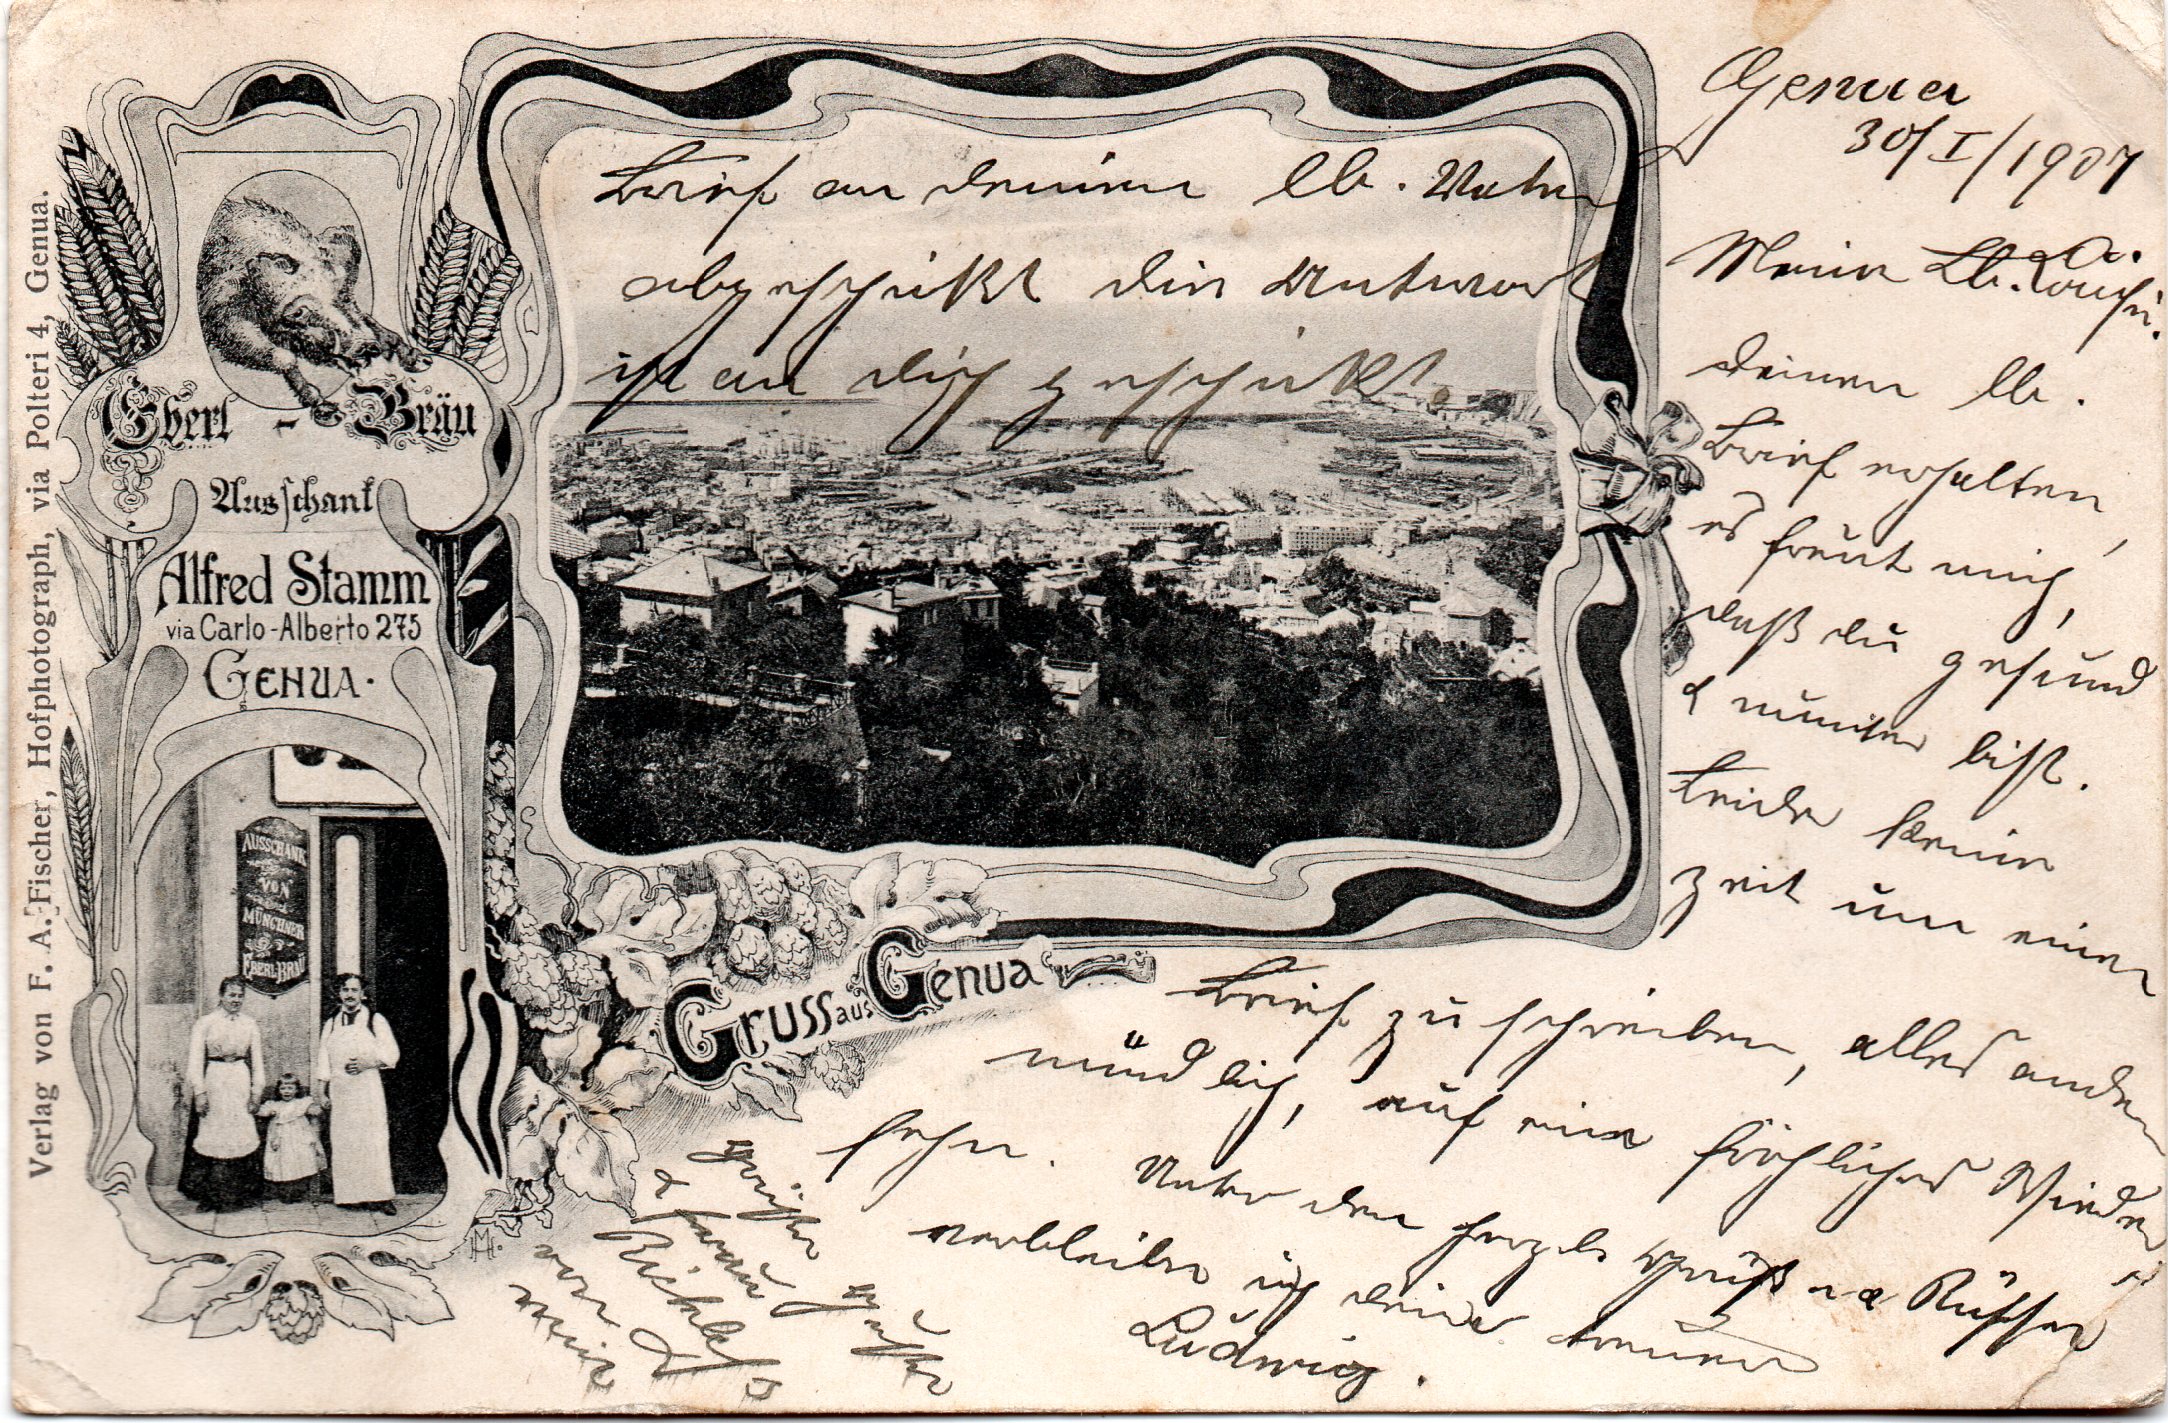 Verlag von F. A. Fischer, Hofphotograph, via Polteri 4, Genua.
Eberl-Bräu
Ausschank
Alfred Stamm
via Carlo-Alberto 275
GENUA.
AUSSCHANK
VON
MÜNCHNER
EBERL-BRÄU
Gruss aus Genua
HM.
Genua
30/I/1907
Meine Lb.
deinen lb.
Brief erhalten,
es freut mich,
daß du gesund
& munter bist.
Leider keine
Zeit um einen
Brief zu schreiben, alles andere
mündlich, auf ein fröhliches Wieder
sehn. Unter den herzl. Grüß Küssen
verbleibe ich dein treuer
Ludwig.
Brief an deinen lb. Vater
abgeschickt die Antwort
ist an dich geschickt.
grüße
& frau
von